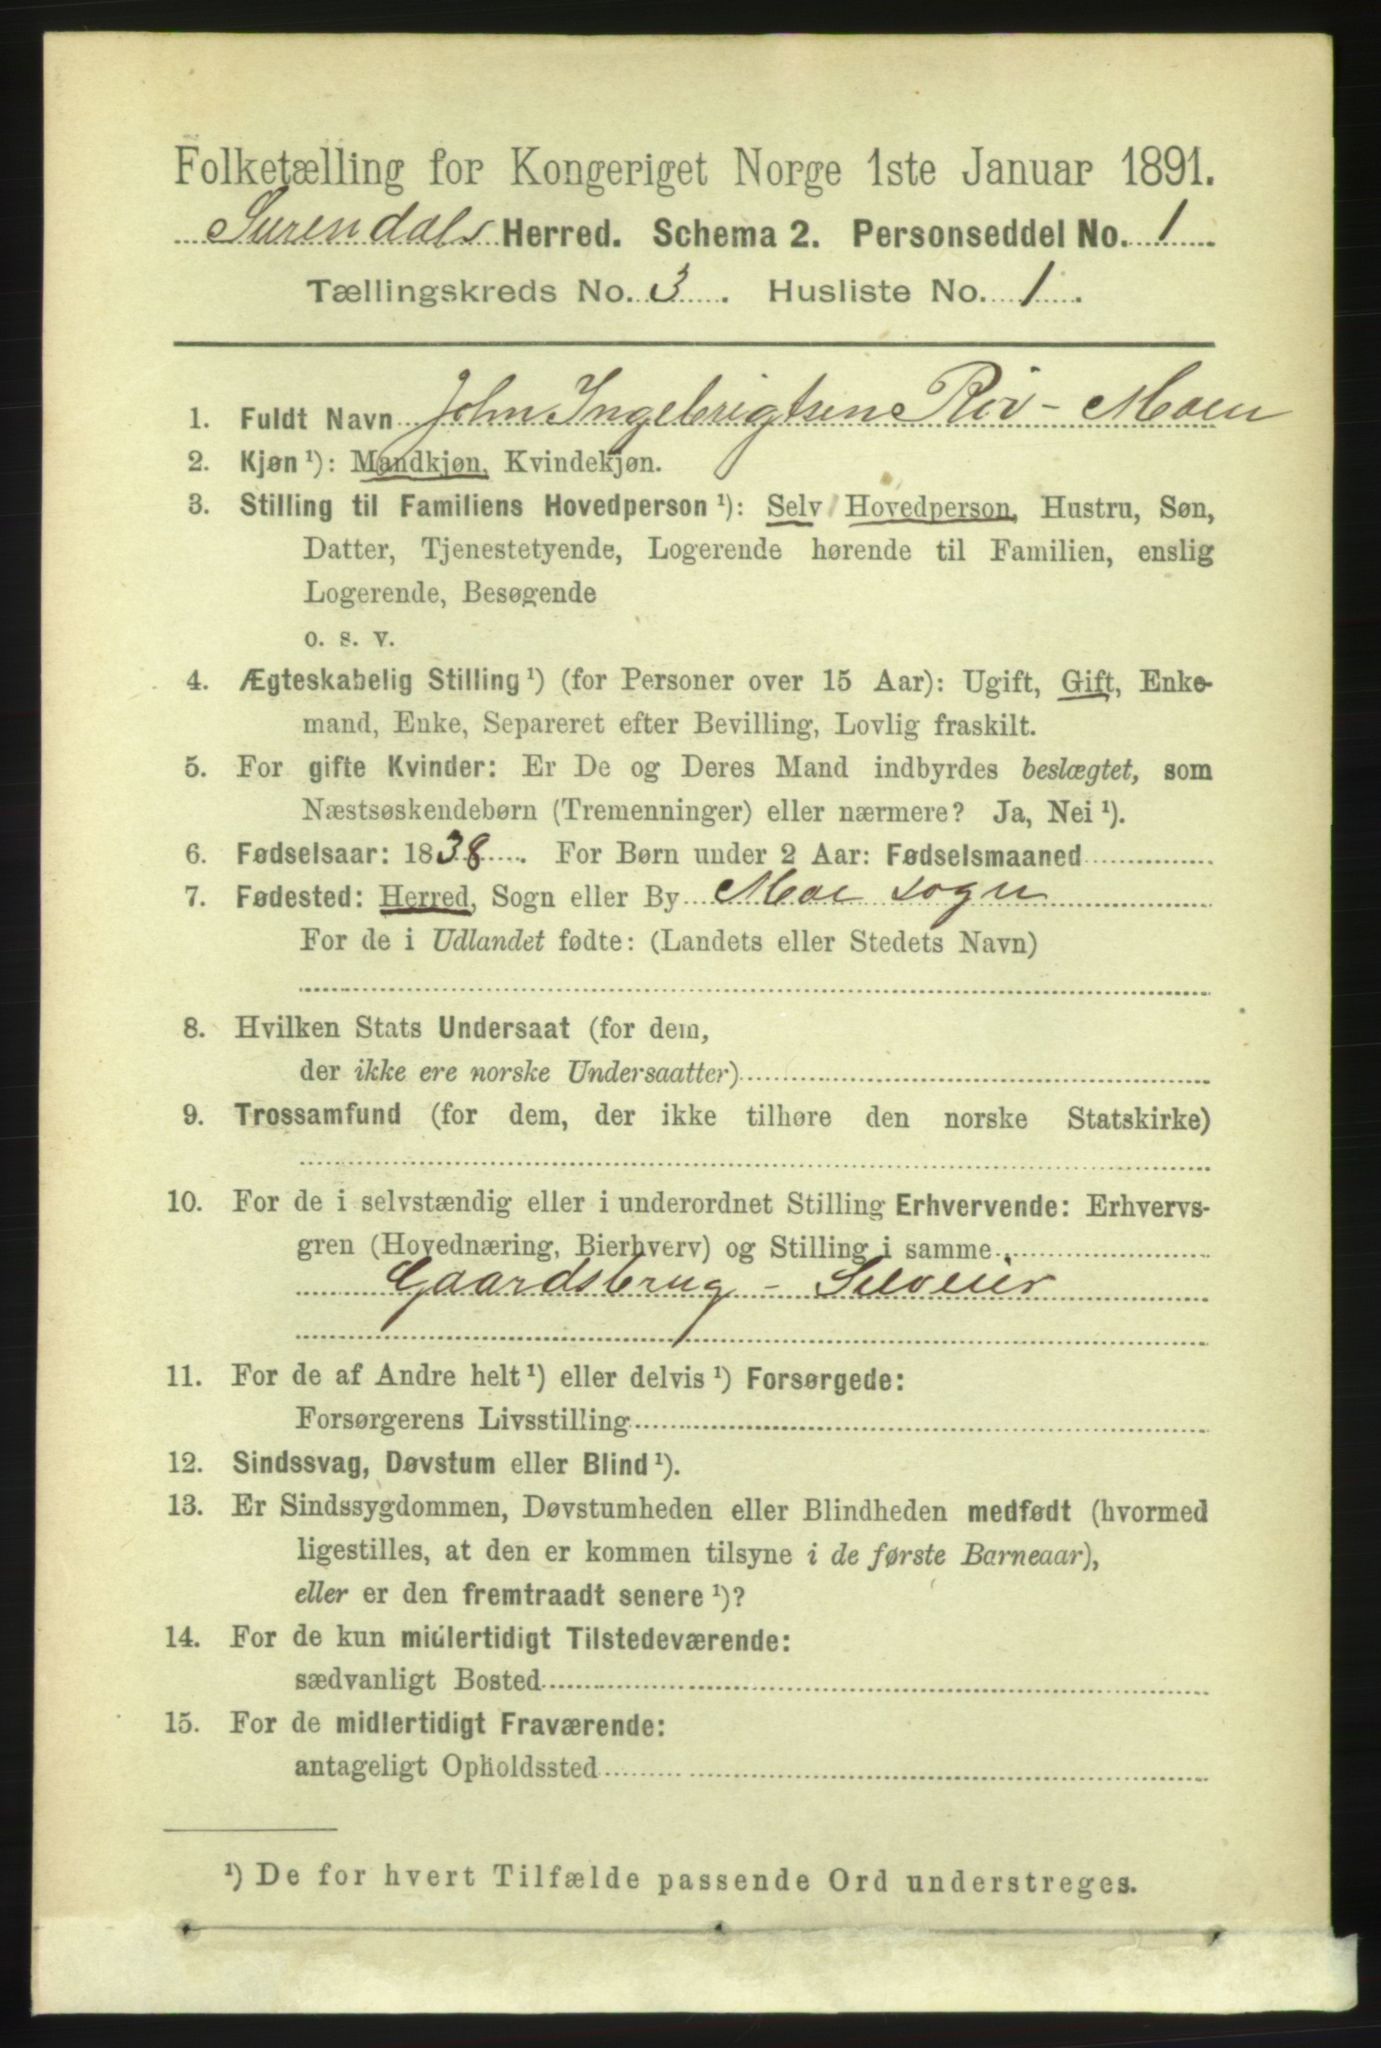 Folketælling for Kongeriget Norge 1ste Januar 1891.
Surendals Herred. Schema 2. Personseddel No. 1
Tællingskreds No. 3. Husliste No. 1.
1. Fuldt Navn John Ingebrigtsen Röv - Moen
2. Kjøn ¹): Mandkjøn, Kvindekjøn.
3. Stilling til Familiens Hovedperson ¹): Selv Hovedperson, Hustru, Søn,
Datter, Tjenestetyende, Logerende hørende til Familien, enslig
Logerende, Besøgende
o. s. v.
4. Ægteskabelig Stilling ¹) (for Personer over 15 Aar): Ugift, Gift, Enke-
mand, Enke, Separeret efter Bevilling, Lovlig fraskilt.
5. For gifte Kvinder: Er De og Deres Mand indbyrdes beslægtet, som
Næstsøskendebørn (Tremenninger) eller nærmere? Ja, Nei ¹).
6. Fødselsaar: 1838. For Børn under 2 Aar: Fødselsmaaned
7. Fødested: Herred, Sogn eller By Moe sogn
For de i Udlandet fødte: (Landets eller Stedets Navn)
8. Hvilken Stats Undersaat (for dem,
der ikke ere norske Undersaatter)
9. Trossamfund (for dem, der ikke tilhøre den norske Statskirke)
10. For de i selvstændig eller i underordnet Stilling Erhvervende: Erhvervs-
gren (Hovednæring, Bierhverv) og Stilling i samme
Gaardsbrug - Selveier
11. For de af Andre helt ¹) eller delvis ¹) Forsørgede:
Forsørgerens Livsstilling
12. Sindssvag, Døvstum eller Blind ¹).
13. Er Sindssygdommen, Døvstumheden eller Blindheden medfødt (hvormed
ligestilles, at den er kommen tilsyne i de første Barneaar),
eller er den fremtraadt senere ¹)?
14. For de kun midlertidigt Tilstedeværende:
sædvanligt Bosted
15. For de midlertidigt Fraværende:
antageligt Opholdssted
¹) De for hvert Tilfælde passende Ord understreges.